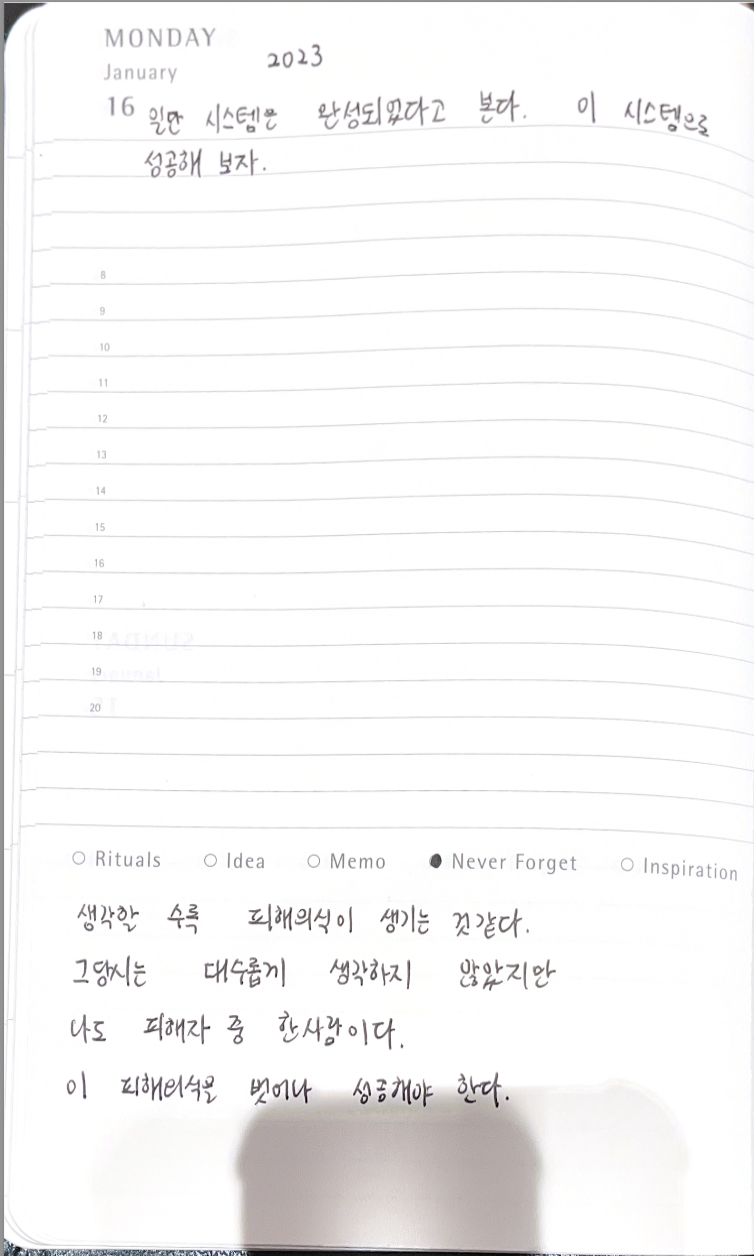 MONDAY
January
2023
16 일단 시스템은 완성되었다고 본다. 이 시스템으로
성공해 보자.
8
9
10
11
12
13
14
15
16
17
18
19
20
Rituals Idea Memo Never Forget Inspiration
생각할 수록 피해의식이 생기는 것같다.
그당시는 대수롭게 생각하지 않았지만
나도 피해자 중 한사람이다.
이 피해의식을 벗어나 성공해야 한다.